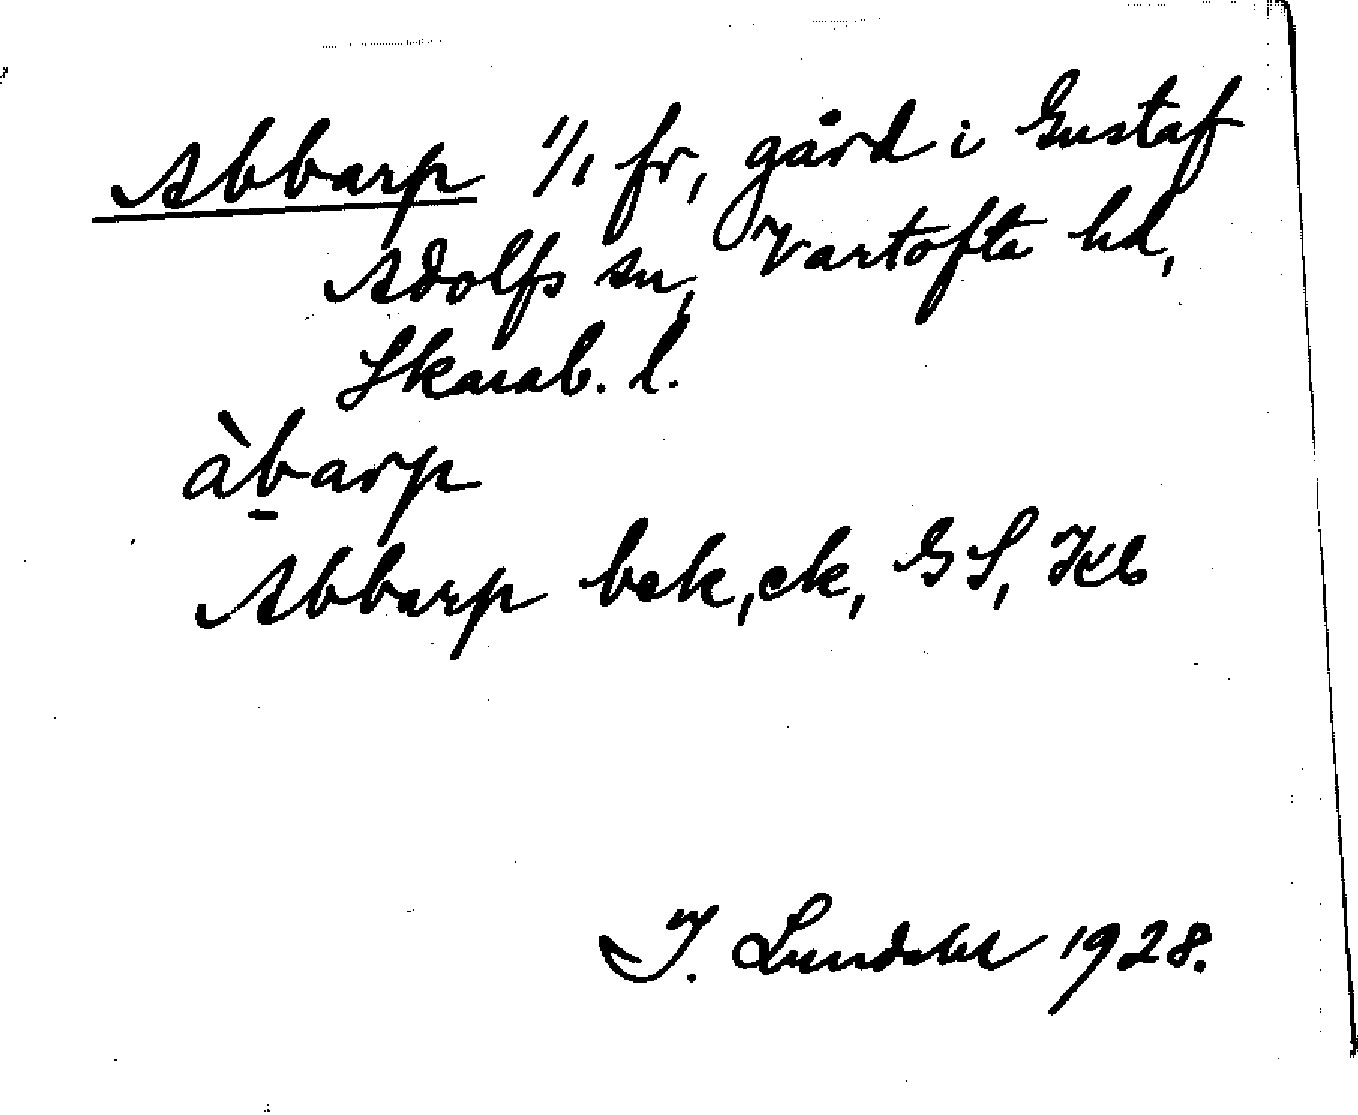 Abbarp 1/1 fr, gård i Gustaf
Adolfs sn, Vartofta hd,
Skarab. l.
àb̲arp
Abbarp bek, ek, GS, Kb
I. Lundahl 1928.